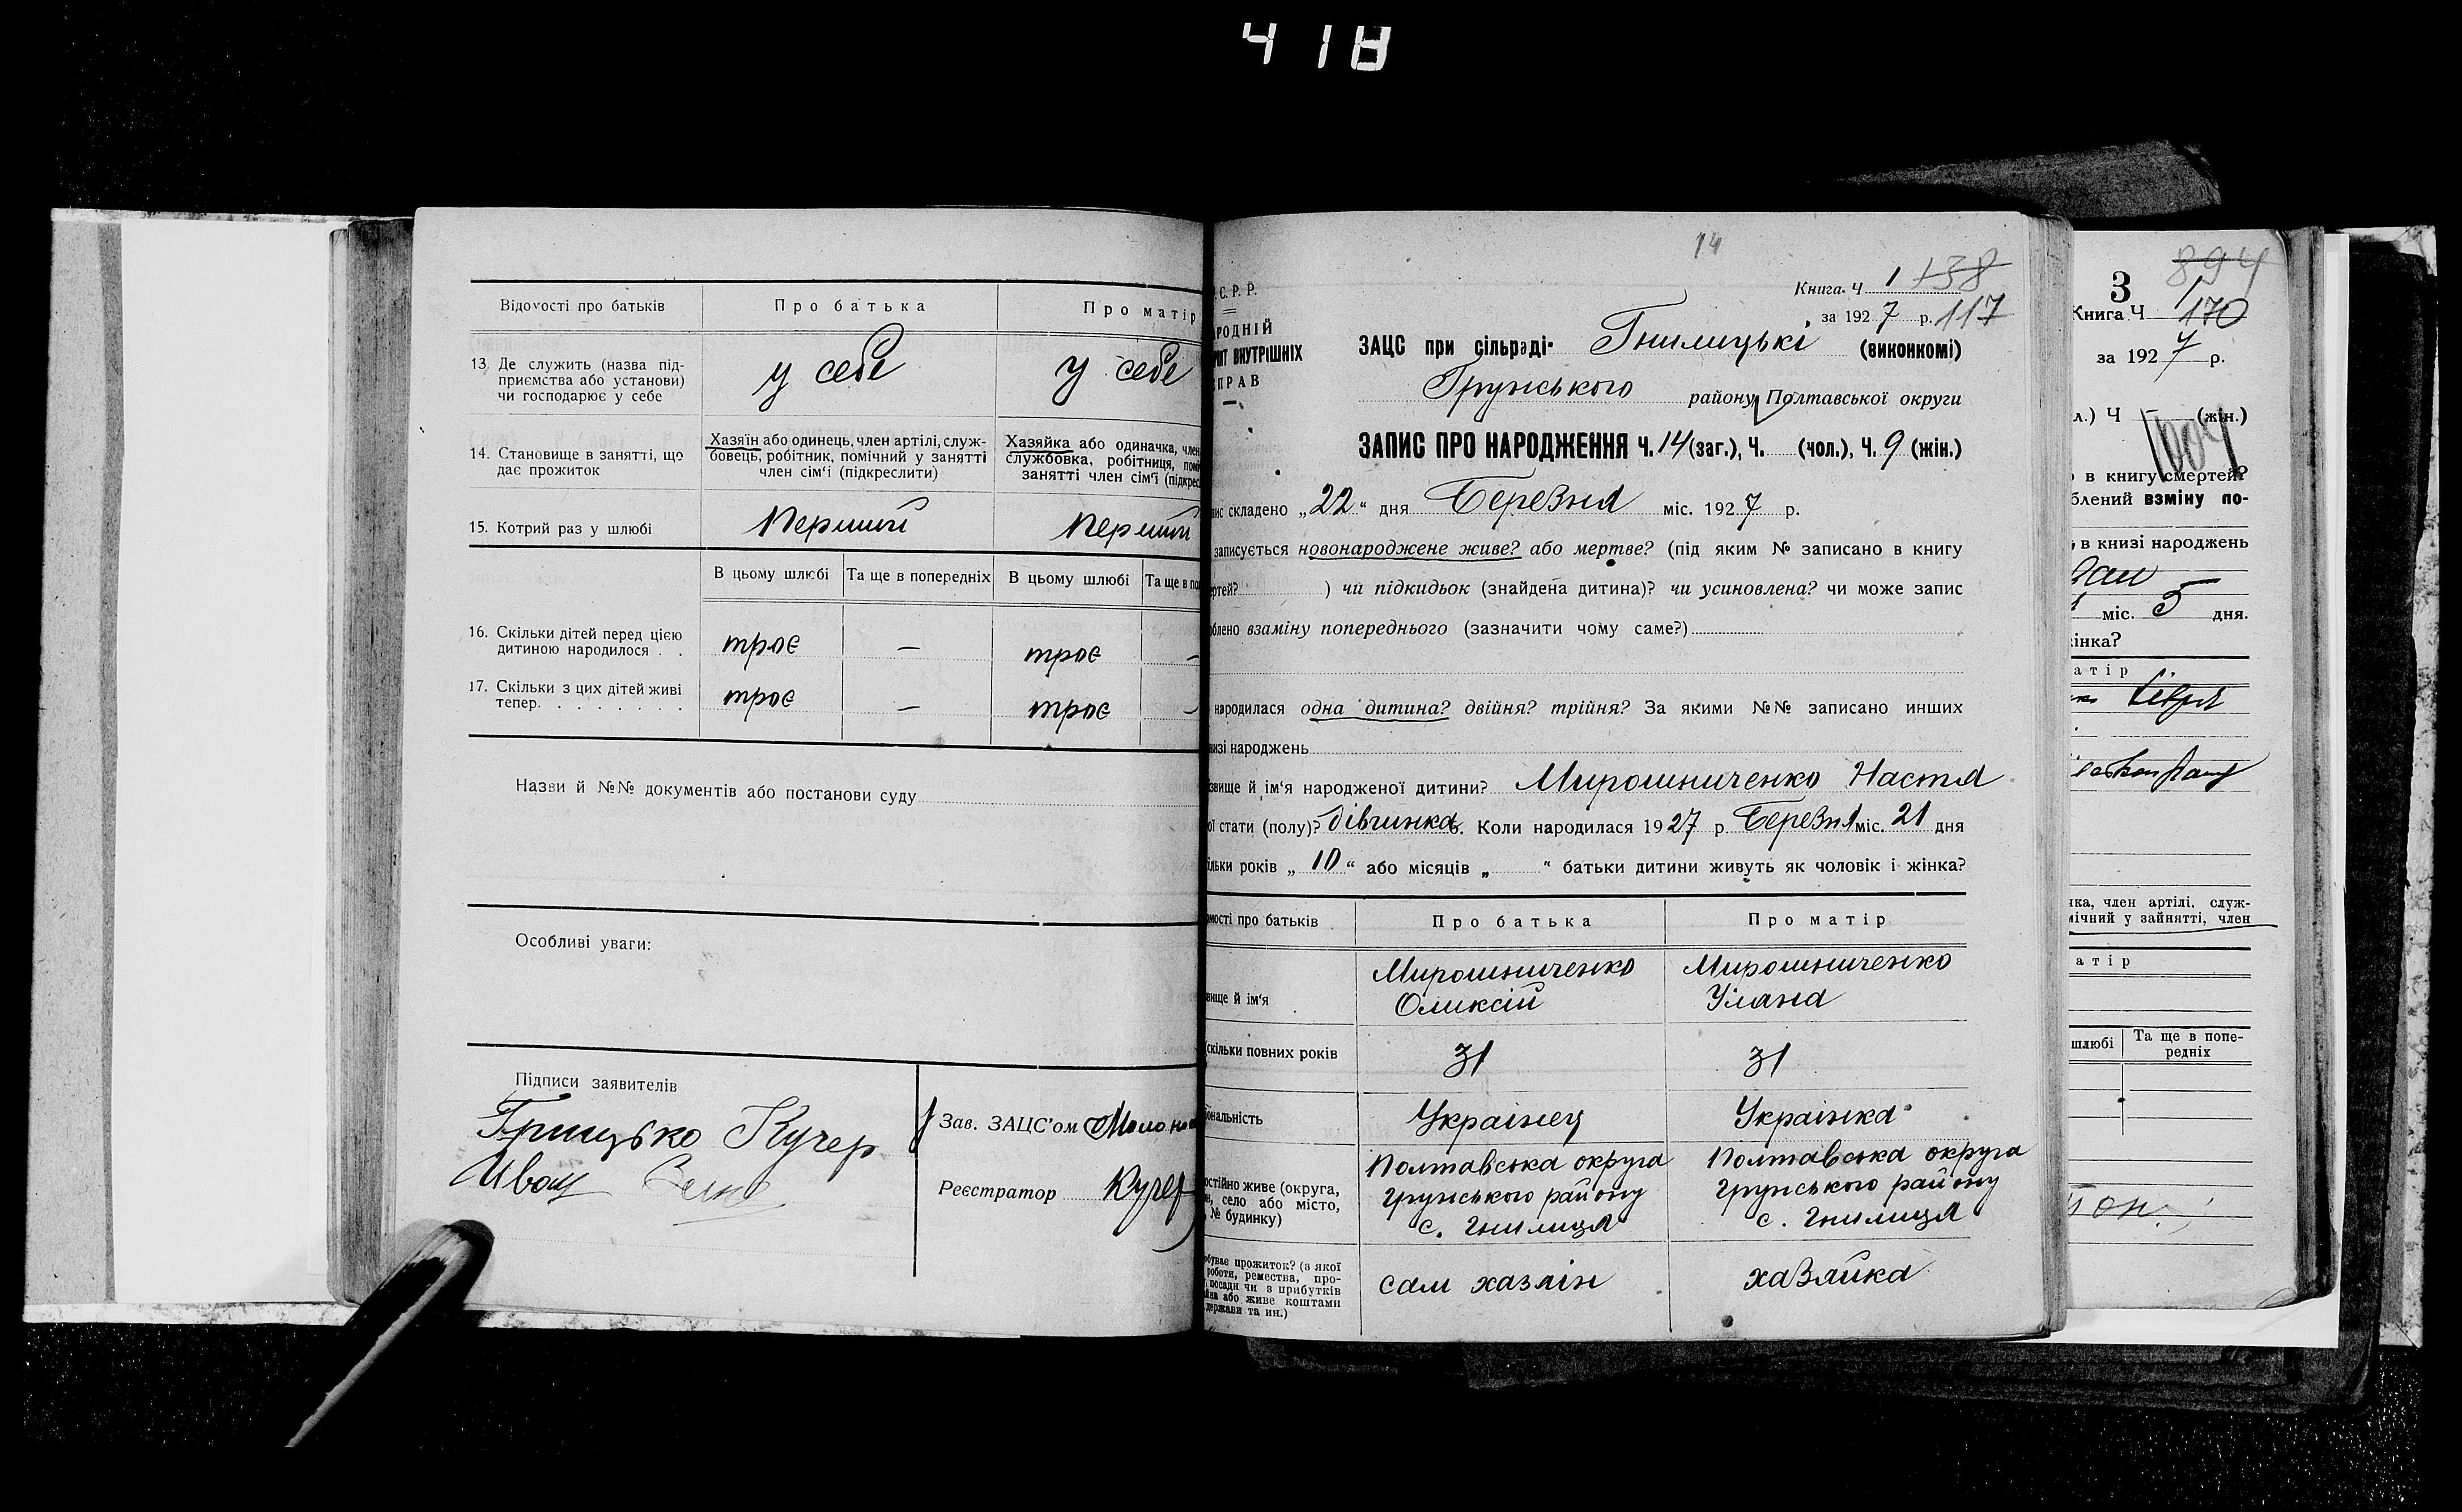 418
Відомости про батьків
Про батька
Про матір
13. Де служить (назва під-
приємства або установи)
чи господарює у себе
у себе
у себе
14. Становище в занятті, що
дає прожиток
Хазяїн або одинець, член артілі, служ-
бовець, робітник, помічний у занятті
член сім'ї (підкреслити)
Хазяйка або одиначка, член
службовка, робітниця, помі
занятті член сім'ї (підкрес
15. Котрий раз у шлюбі
Перший
Перший
В цьому шлюбі
Та ще в попередніх
В цьому шлюбі
Та ще в по
16. Скільки дітей перед цією
дитиною народилося . .
троє
—
троє
—
17. Скільки з цих дітей живі
тепер. . . . . . . .
троє
—
троє
—
Назви й №№ документів або постанови суду
Особливі уваги:
Підписи заявителів
Грицько Кучер
Иван
Зав. ЗАЦС'ом
Реєстратор Кучер
14
Книга Ч 1 138
за 1927 р. 117
С.Р.Р.
РОДНІЙ
ВНУТРІШНІХ
ПРАВ
ЗАЦС при сільраді- Гнилицькі (виконкомі)
Грунського району Полтавської округи
ЗАПИС ПРО НАРОДЖЕННЯ Ч. 14 (заг.), Ч. (чол.), Ч. 9 (жін.)
пис складено „22“ дня Березня міс. 1927 р.
записується новонароджене живе? або мертве? (під яким № записано в книгу
ртей? ) чи підкидьок (знайдена дитина)? чи усиновлена? чи може запис
облено взаміну попереднього (зазначити чому саме?)
народилася одна дитина? двійня? трійня? За якими №№ записано инших
низі народжень
звище й ім'я народженої дитини? Мирошниченко Настя
ої стати (полу)? дівчинка. Коли народилася 1927 р. Березня міс. 21 дня
ільки років „10“ або місяців „ “ батьки дитини живуть як чоловік і жінка?
мості про батьків
Про батька
Про матір
вище й ім'я
Мирошниченко
Оликсій
Мирошниченко
Уляна
скільки повних років
31
31
іональність
Українец
Українка
остійно живе (округа,
н, село або місто,
№ будинку)
Полтавська округа
Грунського району
с. Гнилиця
Полтавська округа
Грунського району
с. Гнилиця
обуває прожиток? (з якої
роботи, ремества, про-
посади чи з прибутків
йна або живе коштами
держави та ин.)
сам хазяін
хазяйка
894
3
Книга Ч 170
за 1927 р.
л.) Ч — (жін.)
в книгу смертей?
блений взміну по-
в книзі народжень
міс. 5 дня.
інка?
атір
нка, член артілі, служ-
мічний у зайнятті, член
атір
шлюбі
Та ще в попе-
редніх